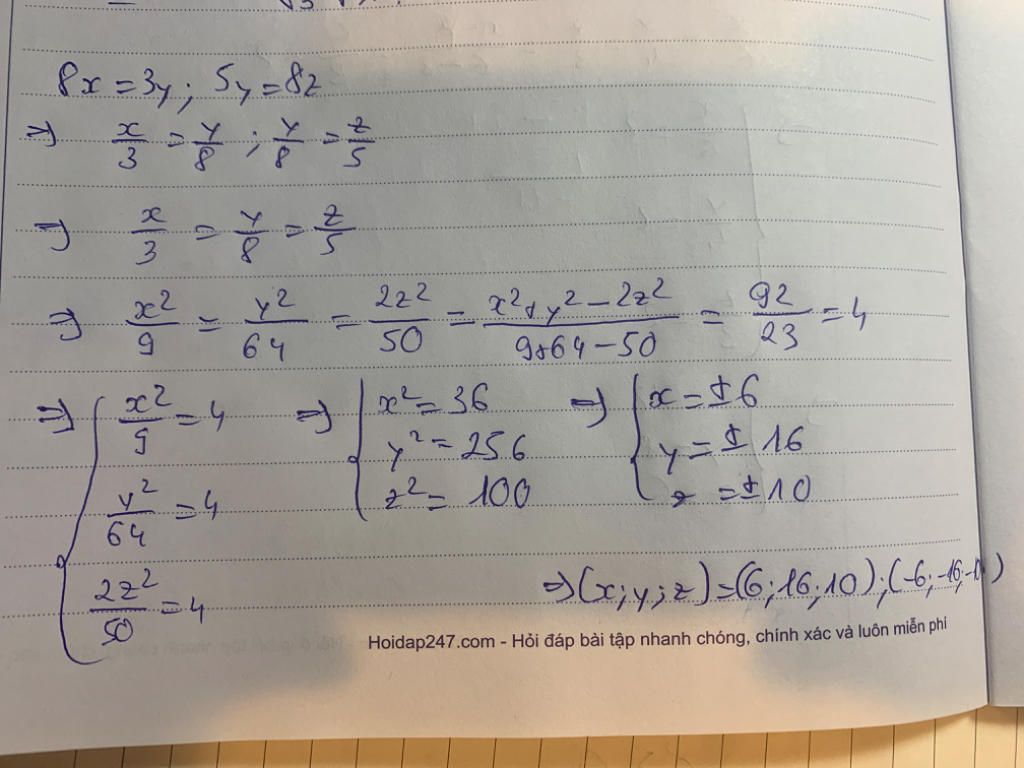 8x = 3y ; 5y = 8z
⇒ x/3 = y/8 ; y/8 = z/5
⇒ x/3 = y/8 = z/5
⇒ x²/9 = y²/64 = 2z²/50 = (x²+y²−2z²)/(9+64−50) = 92/23 = 4
⇒ { x²/9 = 4 ⇒ { x² = 36 ⇒ { x = ±6
y² = 256 y = ±16
y²/64 = 4 z² = 100 z = ±10
2z²/50 = 4
⇒ (x;y;z) = (6;16;10);(-6;-16;-10)
Hoidap247.com - Hỏi đáp bài tập nhanh chóng, chính xác và luôn miễn phí